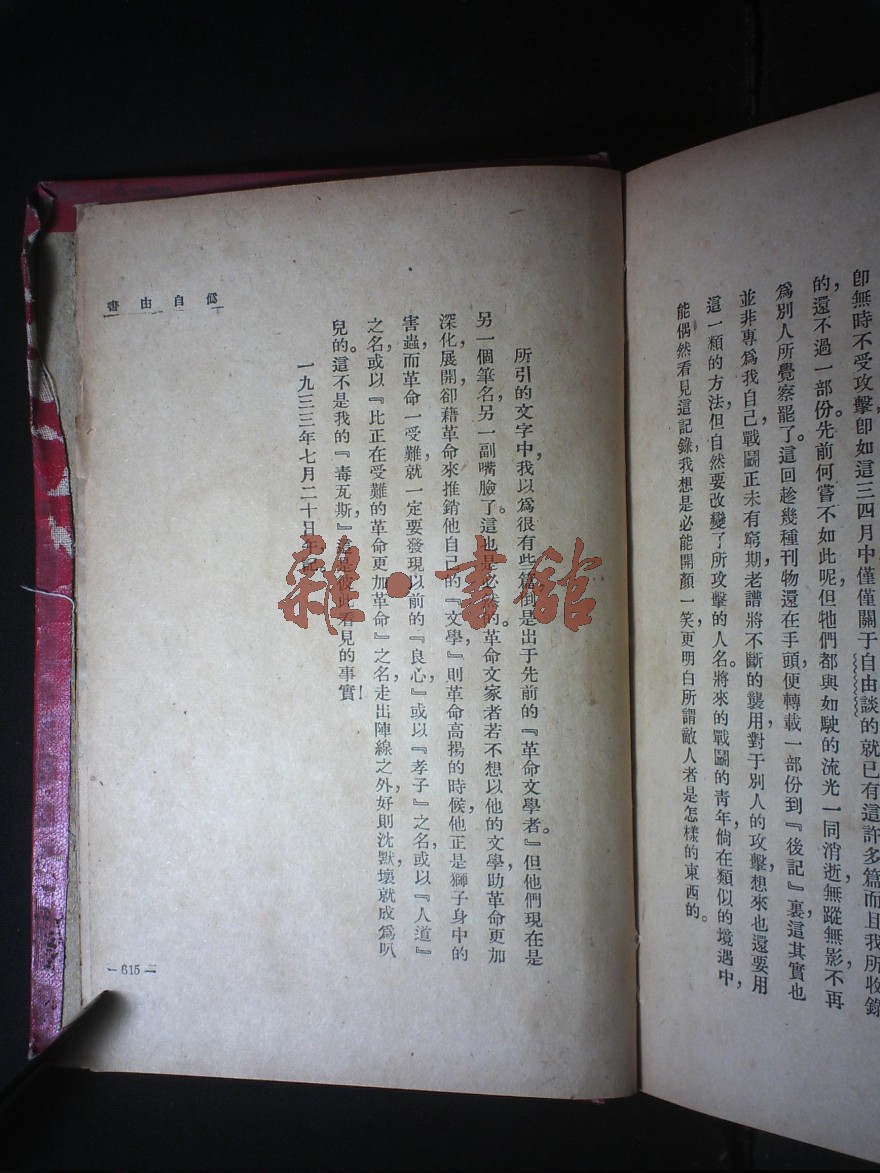 卽無時不受攻擊卽如這三四月中僅僅關于自由談的就已有這許多篇而且我所收錄
的，還不過一部份。先前何嘗不如此呢，但牠們都與如駛的流光一同消逝，無蹤無影，不再
爲別人所覺察罷了。這回趁幾種刊物還在手頭，便轉載一部份到『後記』裏，這其實也
並非專爲我自己，戰鬭正未有窮期，老譜將不斷的襲用，對于別人的攻擊，想來也還要用
這一類的方法，但自然要改變了所攻擊的人名。將來的戰鬭的靑年，倘在類似的境遇中，
能偶然看見這記錄，我想是必能開顏一笑，更明白所謂敵人者是怎樣的東西的。
所引的文字中，我以爲很有些篇，倒是出于先前的『革命文學者』。但他們現在是
另一個筆名，另一副嘴臉了。這也是必然的。革命文家者若不想以他的文學，助革命更加
深化，展開，卻藉革命來推銷他自己的『文學，』則革命高揚的時候，他正是獅子身中的
害蟲，而革命一受難，就一定要發現以前的『良心，』或以『孝子』之名，或以『人道』
之名，或以『比正在受難的革命更加革命』之名，走出陣線之外，好則沈默，壞就成爲叭
兒的。這不是我的『毒瓦斯，』這是彼此看見的事實！
一九三三年七月二十日午記
僞自由書
—615—
雜·書館